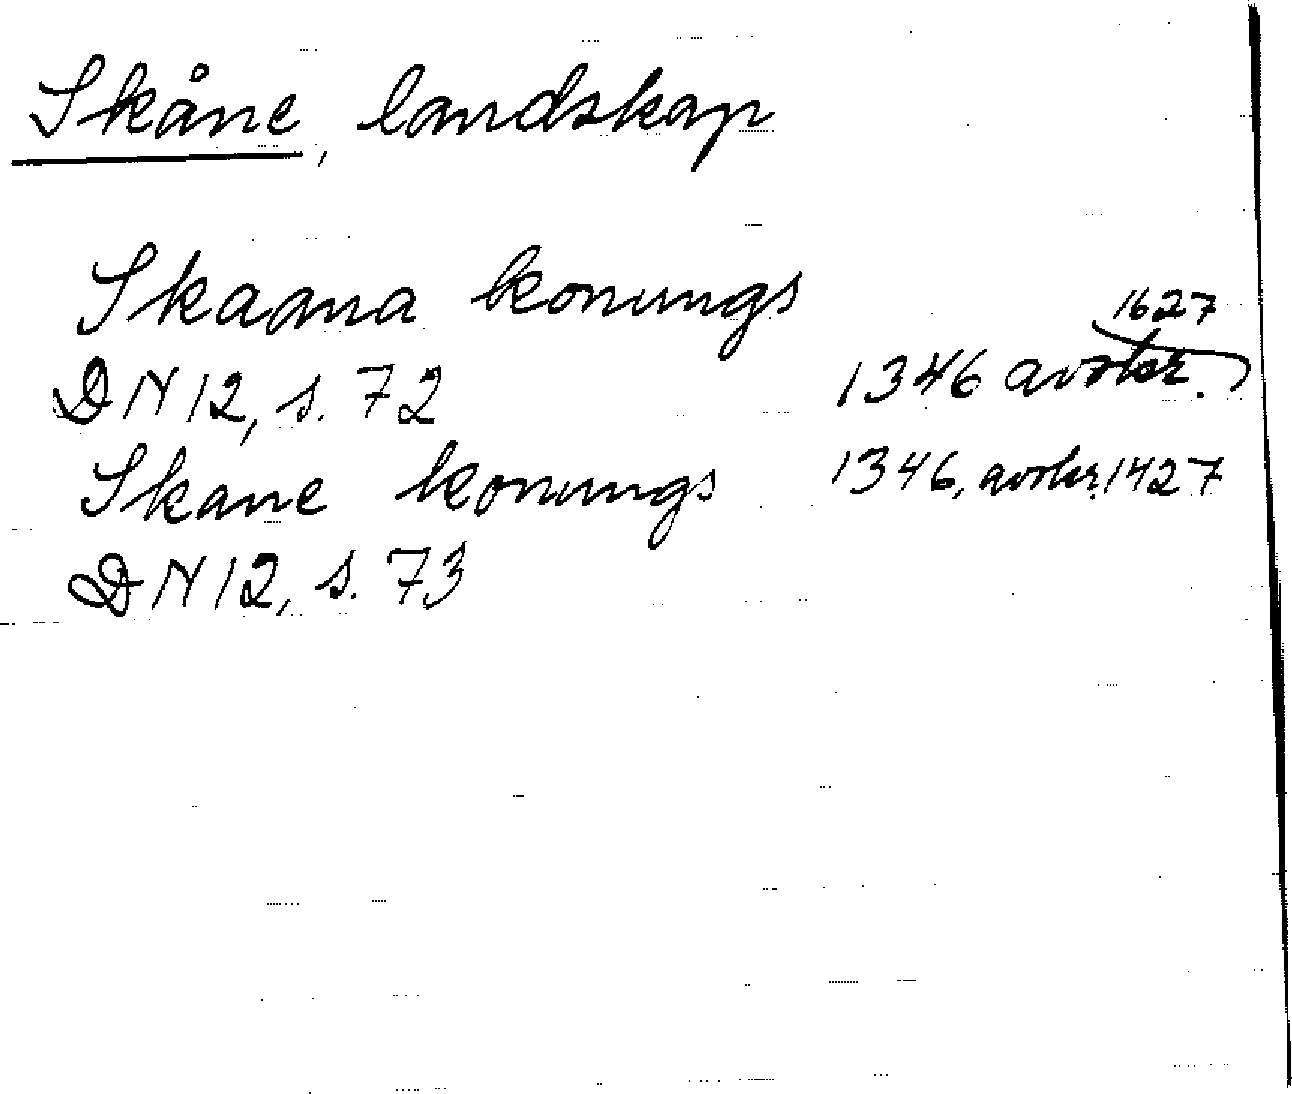 Skåne, landskap
Skaana konungs
1346 avskr. 1627
DN 12, s. 72
Skane konungs 1346, avskr. 1427
DN 12, s. 73